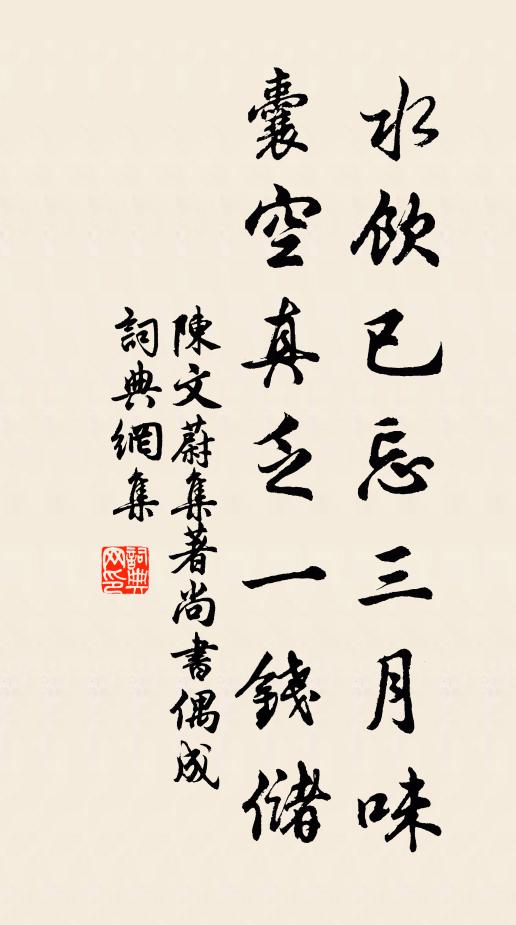 水飲已忘三月味
囊空真乏一錢儲
陳文蔚集著尚書偶成
詞典網集
詞典網印